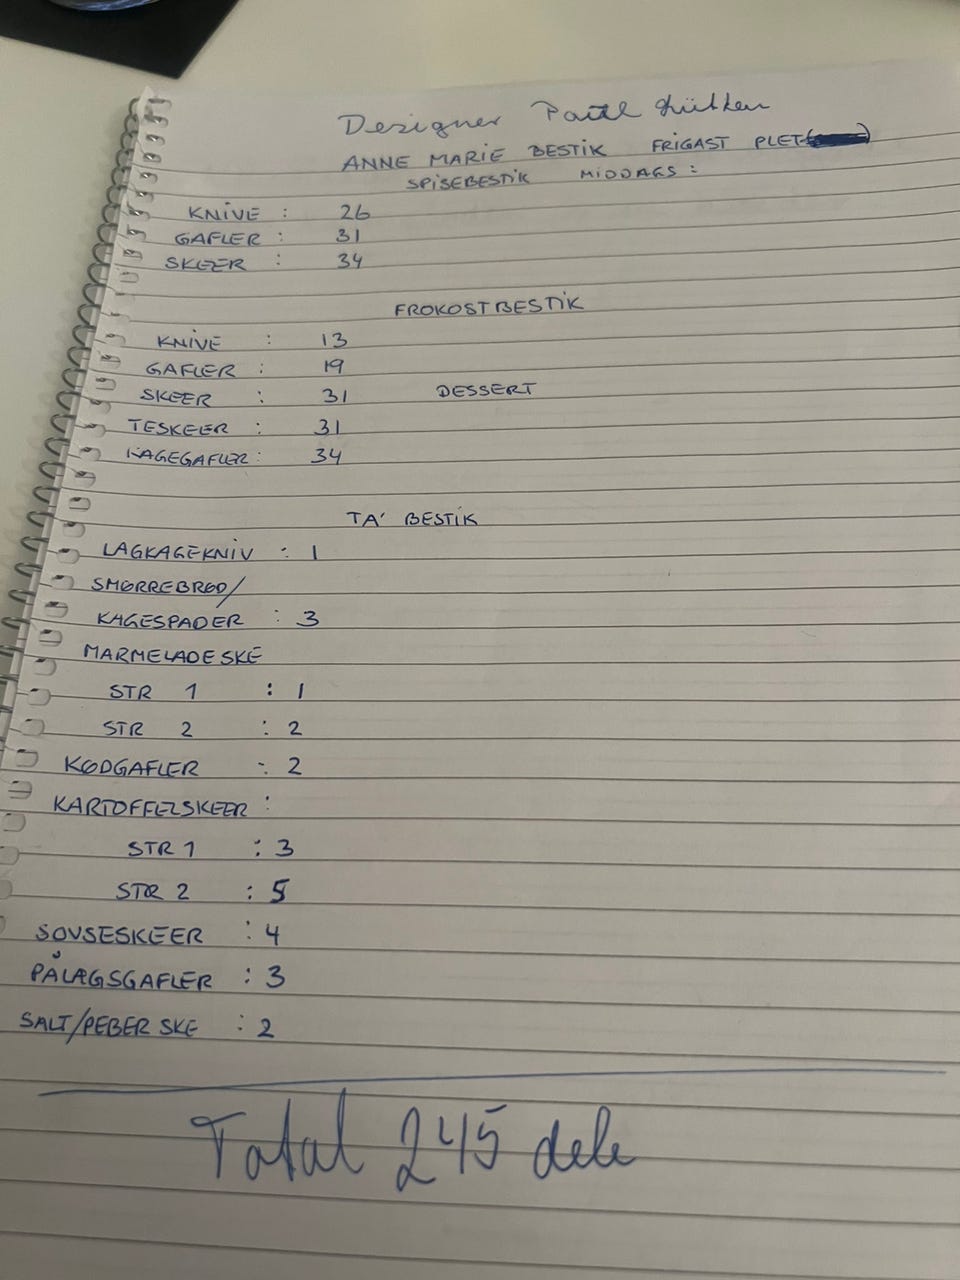 Designer
ANNE MARIE BESTIK FRIGAST PLET
SPISEBESTIK MIDDAGS :
KNIVE : 26
GAFLER : 31
SKEER : 34
FROKOSTBESTIK
KNIVE : 13
GAFLER : 19
SKEER : 31 DESSERT
TESKEER : 31
KAGEGAFLER : 34
TA' BESTIK
LAGKAGEKNIV : 1
SMØRREBRØD/
KAGESPADER : 3
MARMELADESKE
STR 1 : 1
STR 2 : 2
KØDGAFLER : 2
KARTOFFELSKEER :
STR 1 : 3
STR 2 : 5
SOVSESKEER : 4
PÅLÆGSGAFLER : 3
SALT/PEBER SKE : 2
Total 245 dele